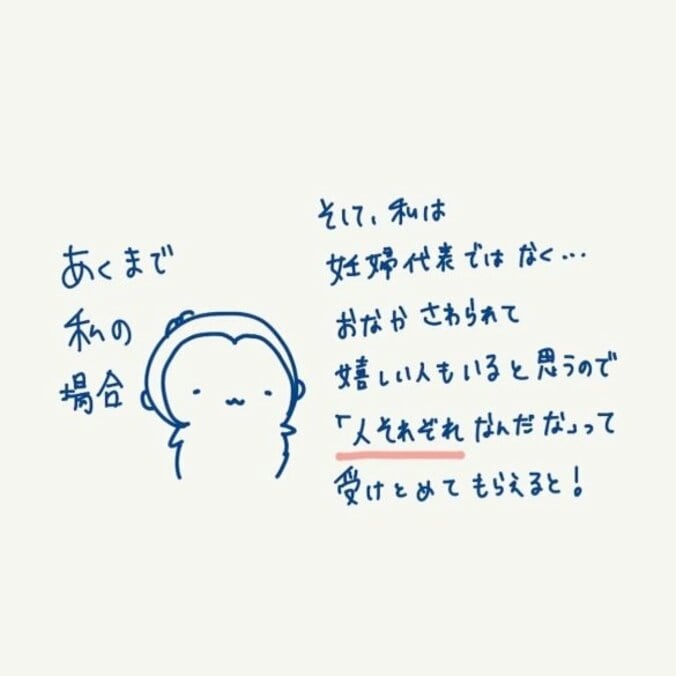 あくまで
私の
場合
そして、私は
妊婦代表ではなく…
おなかさわられて
嬉しい人もいると思うので
「人それぞれなんだな」って
受けとめてもらえると!